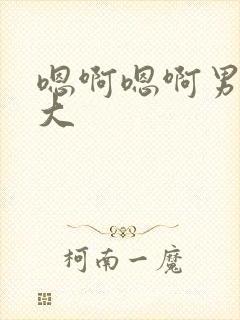 嗯啊嗯啊男
大
柯南一魔